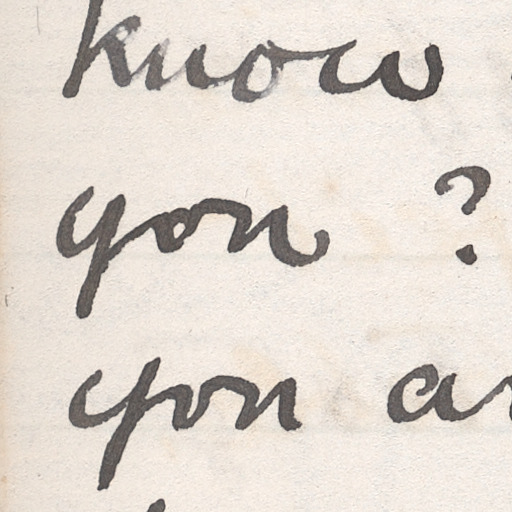 know
you ?
you